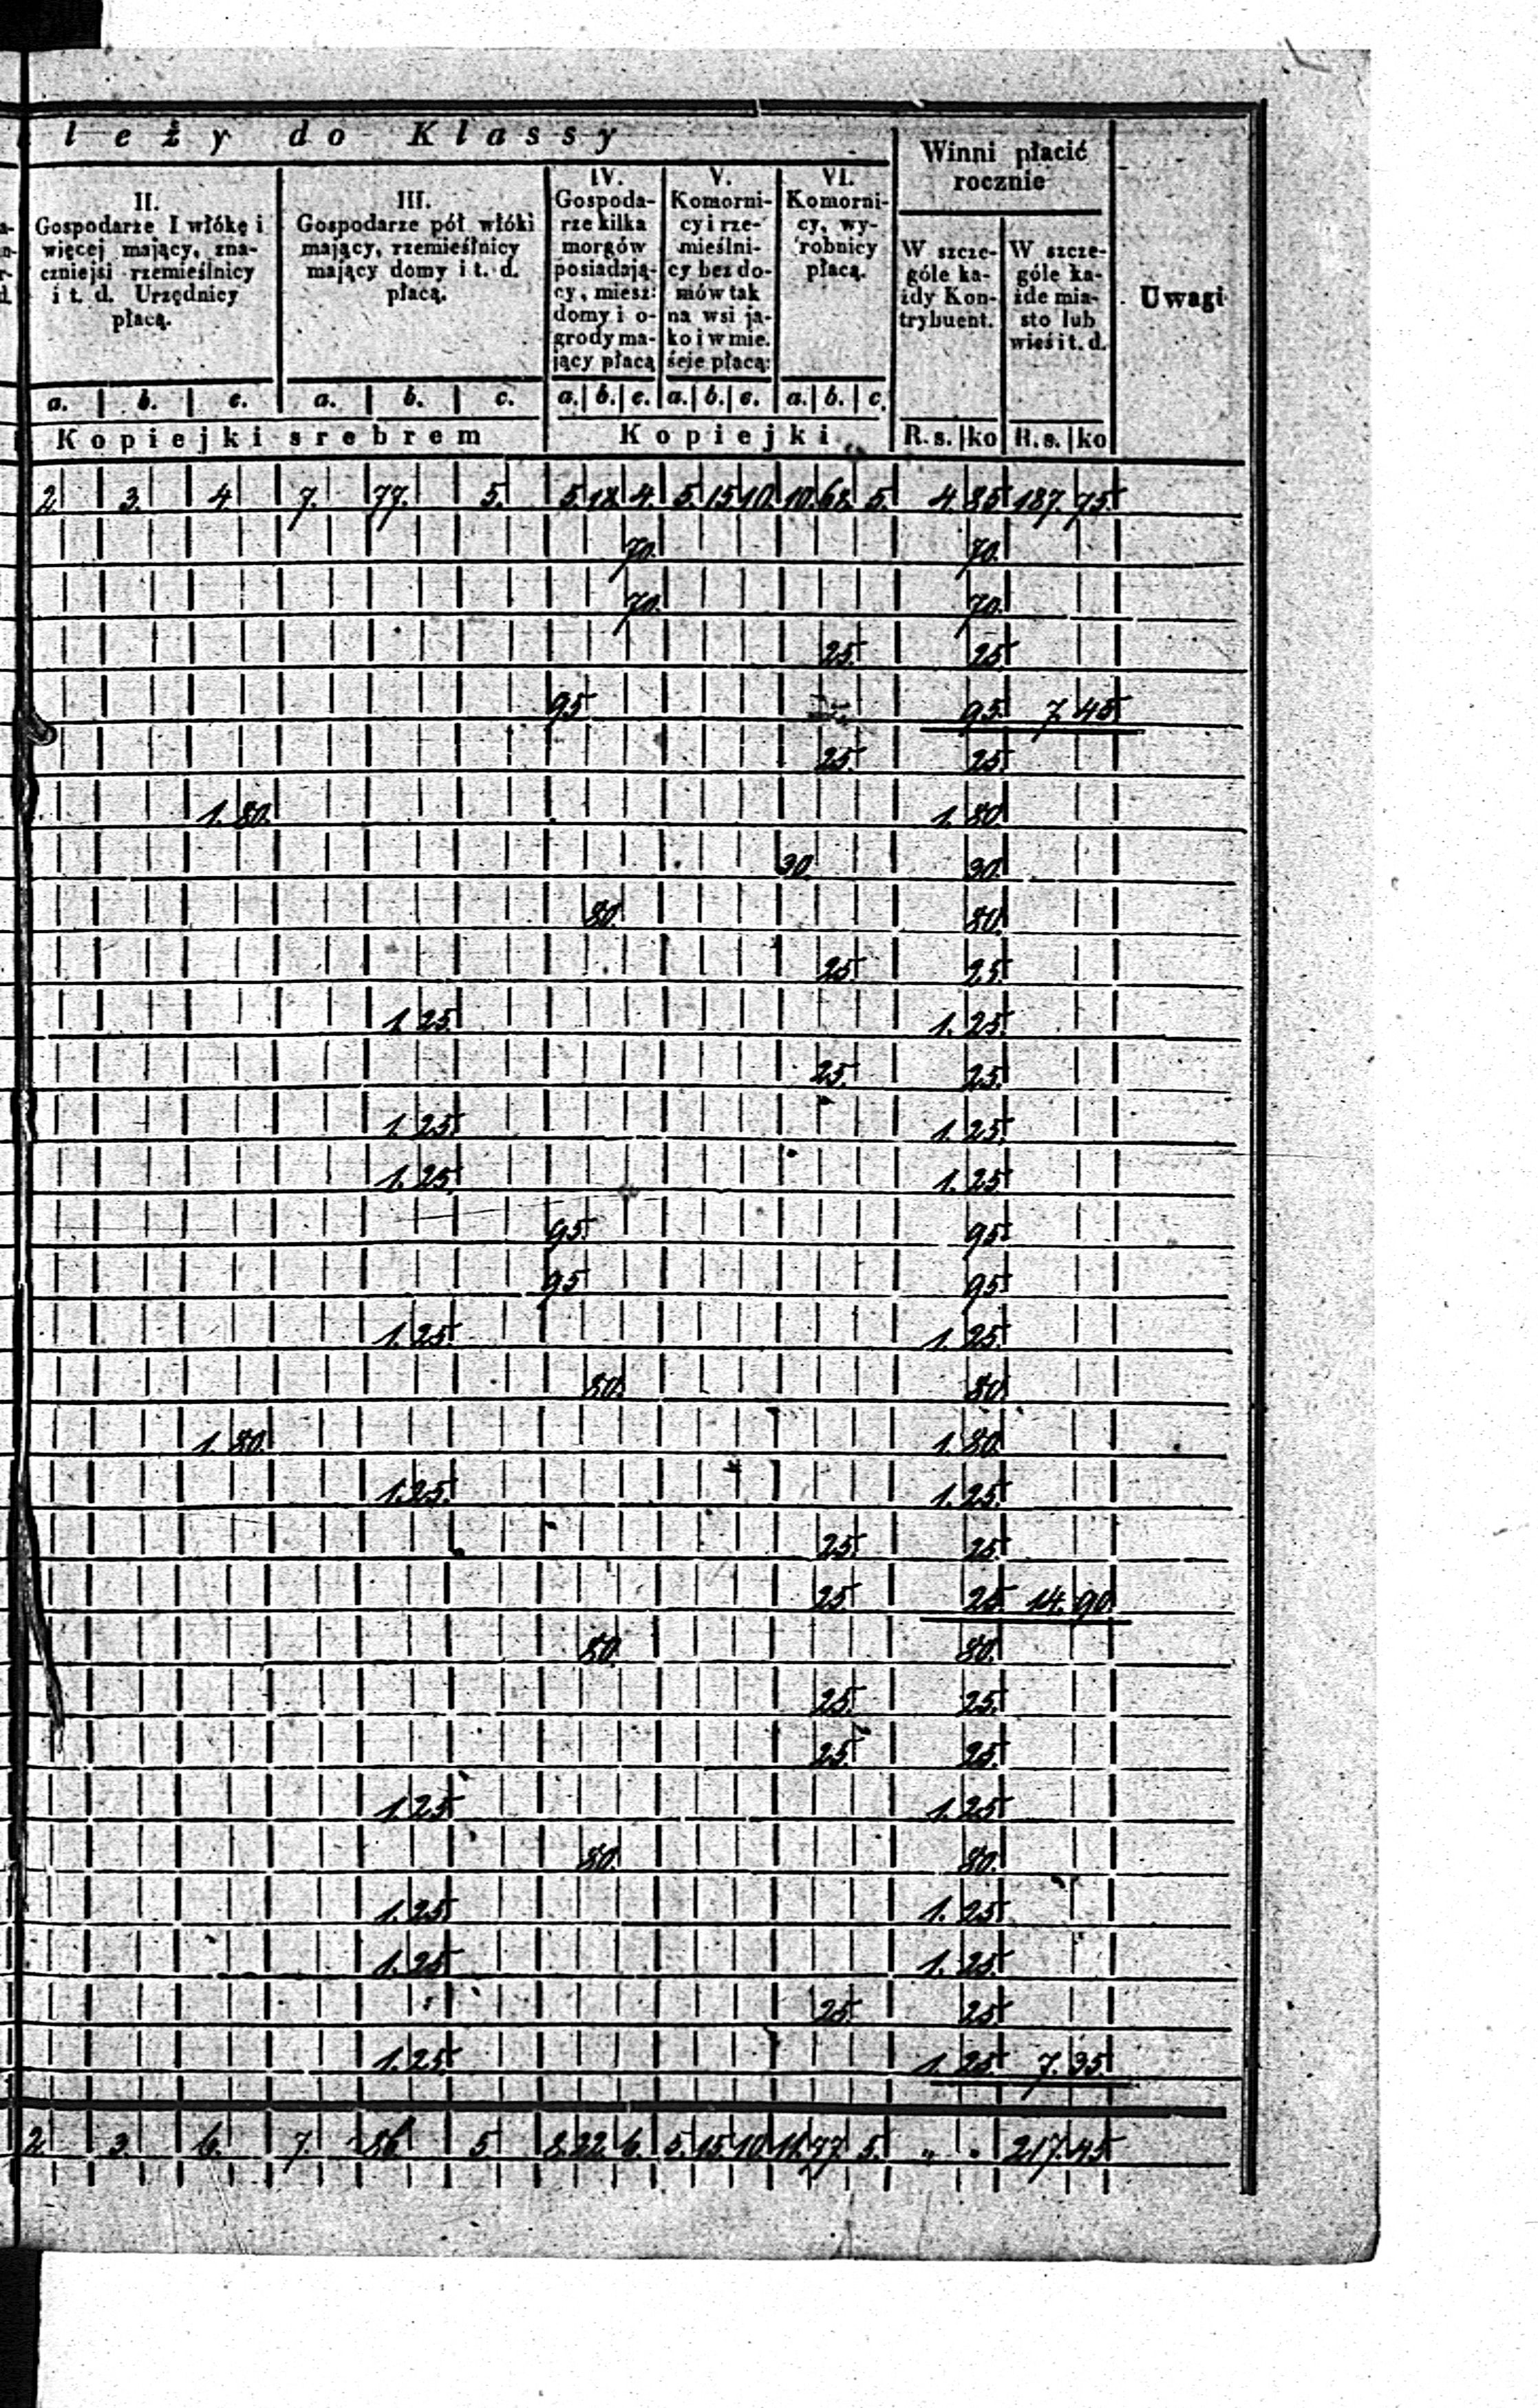 leży do Klassy
Winni płacić rocznie
Uwagi
II. Gospodarze I włókę i więcej mający, znaczniejsi rzemieślnicy i t. d. Urzędnicy płacą.
III. Gospodarze pół włóki mający, rzemieślnicy mający domy i t. d. płacą.
IV. Gospodarze kilka morgów posiadający, miesz: domy i ogrody mający płacą
V. Komornicy i rzemieślnicy bez domów tak na wsi jako i w mieście płacą:
VI. Komornicy, wyrobnicy płacą.
W szczególe każdy Kontrybuent.
W szczególe każde miasto lub wieś i t. d.
a. b. c. a. b. c. a. b. c. a. b. c. a. b. c.
Kopiejki srebrem Kopiejki R.s. ko R.s. ko
2 3. 4. 7. 77. 5. 5. 18. 4. 5. 15 10. 10. 68. 5. 4. 85 187. 75.
70. 70.
70. 70.
25. 25.
95 95. 7. 45
25. 25.
1. 80. 1. 80.
30. 30.
80. 80.
25. 25.
1. 25. 1. 25.
25. 25.
1. 25. 1. 25.
1. 25. 1. 25.
95. 95.
95 95
1. 25. 1. 25.
80. 80.
1. 80. 1. 80.
1. 25. 1. 25.
25. 25.
25. 25. 14. 90.
80. 80.
25. 25.
25. 25.
1. 25 1. 25
80. 80.
1. 25. 1. 25
1. 25 1. 25.
25. 25.
1. 25. 1. 25. 7. 35.
2. 3. 6. 7. 86 5. 8. 22. 6. 5. 15. 10. 11. 77. 5. „ „ 217. 45